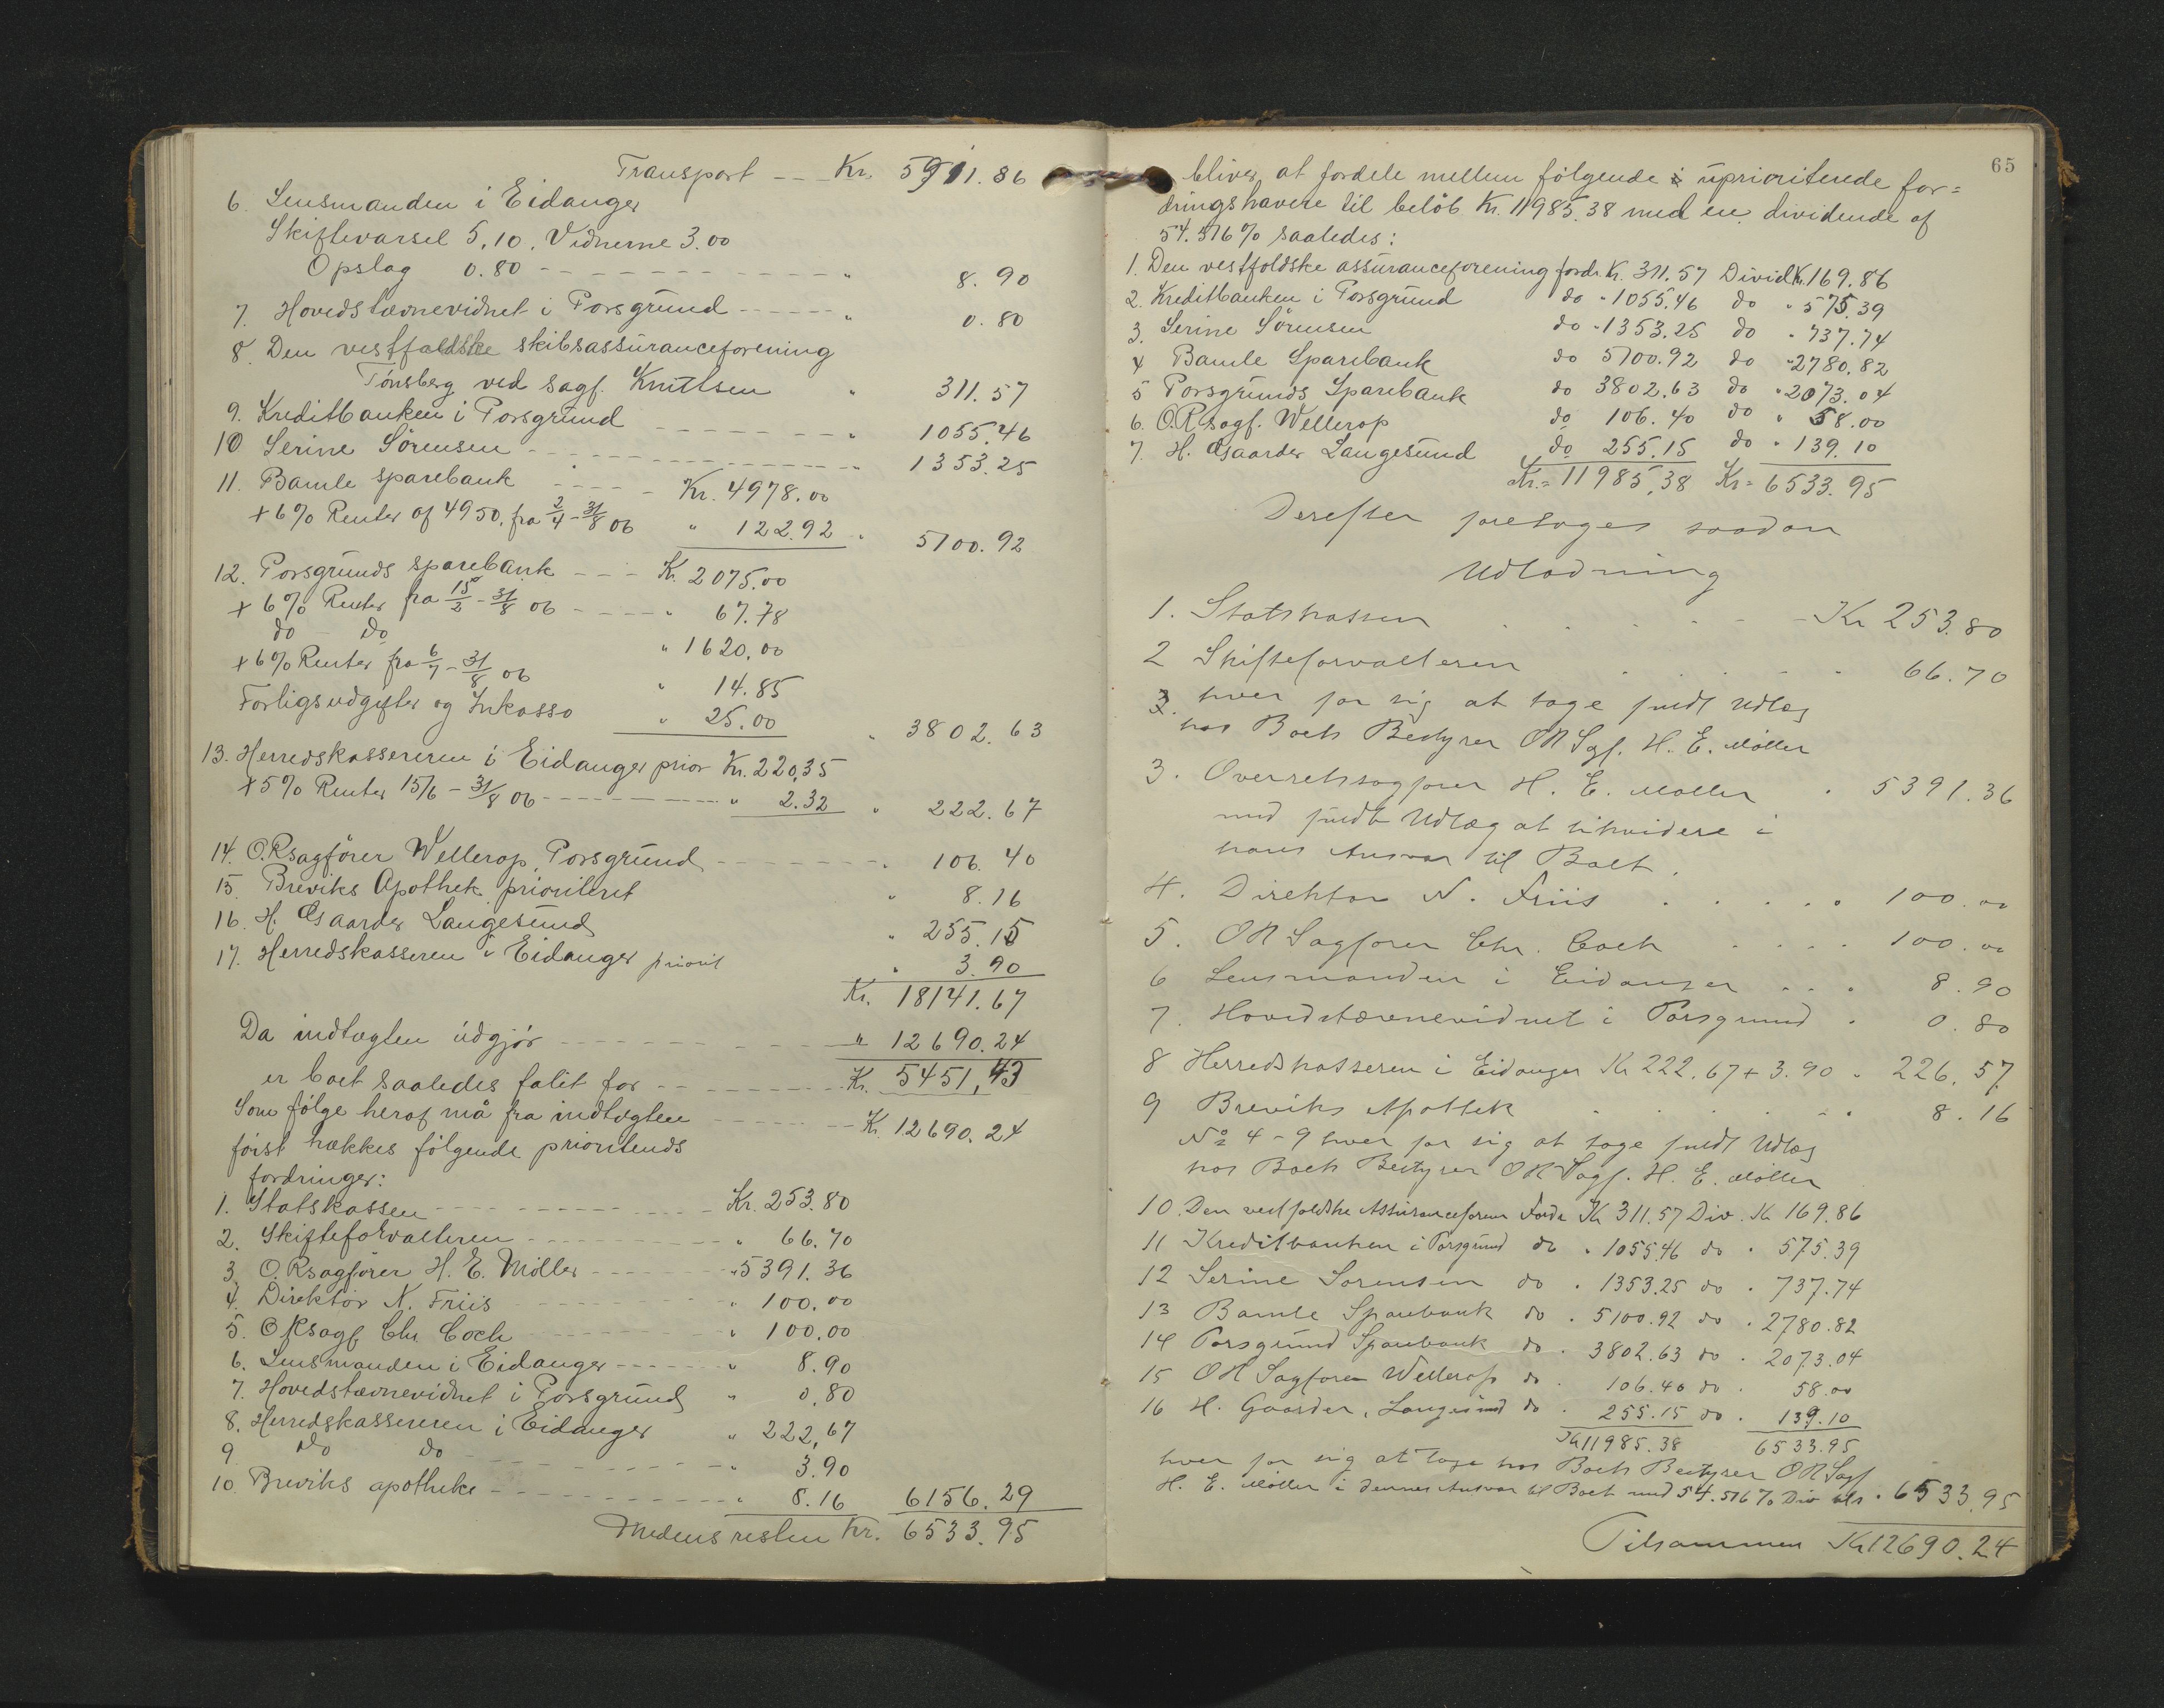 Transport -- Kr. 5911.86
6. Lensmanden i Eidanger
Skiftevarsel 5,10, Vidnerne 3.00
Opslag 0.80 - - - - - - - " 8.90
7. Hovedstævnevidnet i Porsgrund ----- " 0.80
8. Den vestfoldske skibsassuranceforening
Tønsberg ved sagf. Knutsen " 311.57
9. Kreditbanken i Porsgrund - - - - - " 1055.46
10 Serine Sörensen - - - - - - - " 1353.25
11. Bamle sparebank - - - - Kr. 4978.00
+6% Renter af 4950, fra 2/4-31/8 06 " 122.92 " 5100.92
12. Porsgrunds sparebank --- Kr. 2075.00
+ 6% Renter fra 15/2-31/8 06 ---- " 67.78
do - do " 1620,00
+6% Renter fra 6/7-31/8 06 " 14.85
Forligsudgifter og Inkasso " 25.00 " 3802.63
13. Herredskassereren i Eidanger prior Kr. 220,35
+5% Renter 15/6-31/8 06 ------ " 2.32 " 222.67
14. O.Rsagfører Wellerop, Porsgrund ------ " 106.40
15 Breviks Apothek, prioriteret " 8.16
16. H. Gaarder Langesund " 255.15
17. Herredskasseren i Eidanger priorit " 3.90
Kr. 18141.67
Da indtægten udgjør - - - - - - " 12690.24
er boet saaledes falit for - - - - - Kr. 5451,43
Som følge heraf må fra indtægten - - - - Kr. 12690.24
først trækkes følgende prioriterede
fordringer:
1. Statskassen - - - - - - Kr. 253.80
2. Skifteforvalteren - - - - - " 66.70
3. O.Rsagfører H. E. Møller ------ " 5391.36
4. Direktør N. Friis - - - - - " 100.00
5. ORsagf Chr Coch - - - - - " 100,00
6. Lensmanden i Eidanger ------ " 8.90
7. Hovedstævnevidnet i Porsgrund " 0,80
8. Herredskassereren i Eidanger " 222,67
9 do do - - - - - " 3.90
10. Breviks apotheke - - - - - " 8.16 6156.29
Medens resten Kr. 6533.95
65
bliver at fordele mellem følgende uprioriterede for=
dringshavere til beløb Kr. 11985.38 med en dividende af
54.516% saaledes:
1. Den vestfoldske assuranceforening fordr. Kr. 311.57 Divid Kr. 169.86
2. Kreditbanken i Porsgrund do " 1055.46 do " 575.39
3. Serine Sörensen do " 1353.25 do " 737.74
4 Bamle Sparebank do 5100.92 do " 2780.82
5 Porsgrunds Sparebank do 3802.63 do " 2073.04
6. O.Rsagf. Wellerop do 106.40 do " 58.00
7. H. Gaarder Langesund do 255.15 do " 139.10
Kr.= 11985,38 Kr= 6533.95
Derefter foretages saadan
Udlodning
1. Statskassen . . . . . - Kr 253.80
2 Skifteforvalteren . . . . 66.70
hver for sig at tage fuldt Udlæg
hos Boets Bestyrer OR Sgf. H. E. Møller
3. Overretssagfører H. E. Møller " 5391.36
med fuldt Udlæg at likvidere i
hans Ansvar til Boet.
4. Direktør N. Friis . . . . . 100.00
5. OR Sagfører Chr. Coch . . . . 100.00
6 Lensmanden i Eidanger . . . 8.90
7. Hovedstævnevidnet i Porsgrund . 0.80
8 Herredskasseren i Eidanger Kr 222.67 + 3.90 " 226.57
9 Breviks Apothek . . . . . 8.16
No 4-9 hver for sig at tage fuldt Udlæg
hos Boets Bestyrer OR Sagf. H. E. Møller
10. Den vestfoldske Assuranceforen Fordr Kr 311.57 Div. Kr 169.86
11 Kreditbanken i Porsgrund do " 1055.46 do " 575.39
12 Serine Sørensen do " 1353.25 do " 737.74
13 Bamle Sparebank do " 5100.92 do " 2780.82
14 Porsgrund Sparebank do " 3802.63 do " 2073.04
15 OR Sagfører Wellerop do " 106.40 do " 58.00
16 H. Gaarder, Langesund do " 255.15 do " 139.10
Kr 11985.38 6533.95
hver for sig at tage hos Boets Bestyrer OR Sagf
H. E. Møller i dennes Ansvar til Boet med 54.516% Div " 6533.95
Tilsammen Kr 12690.24